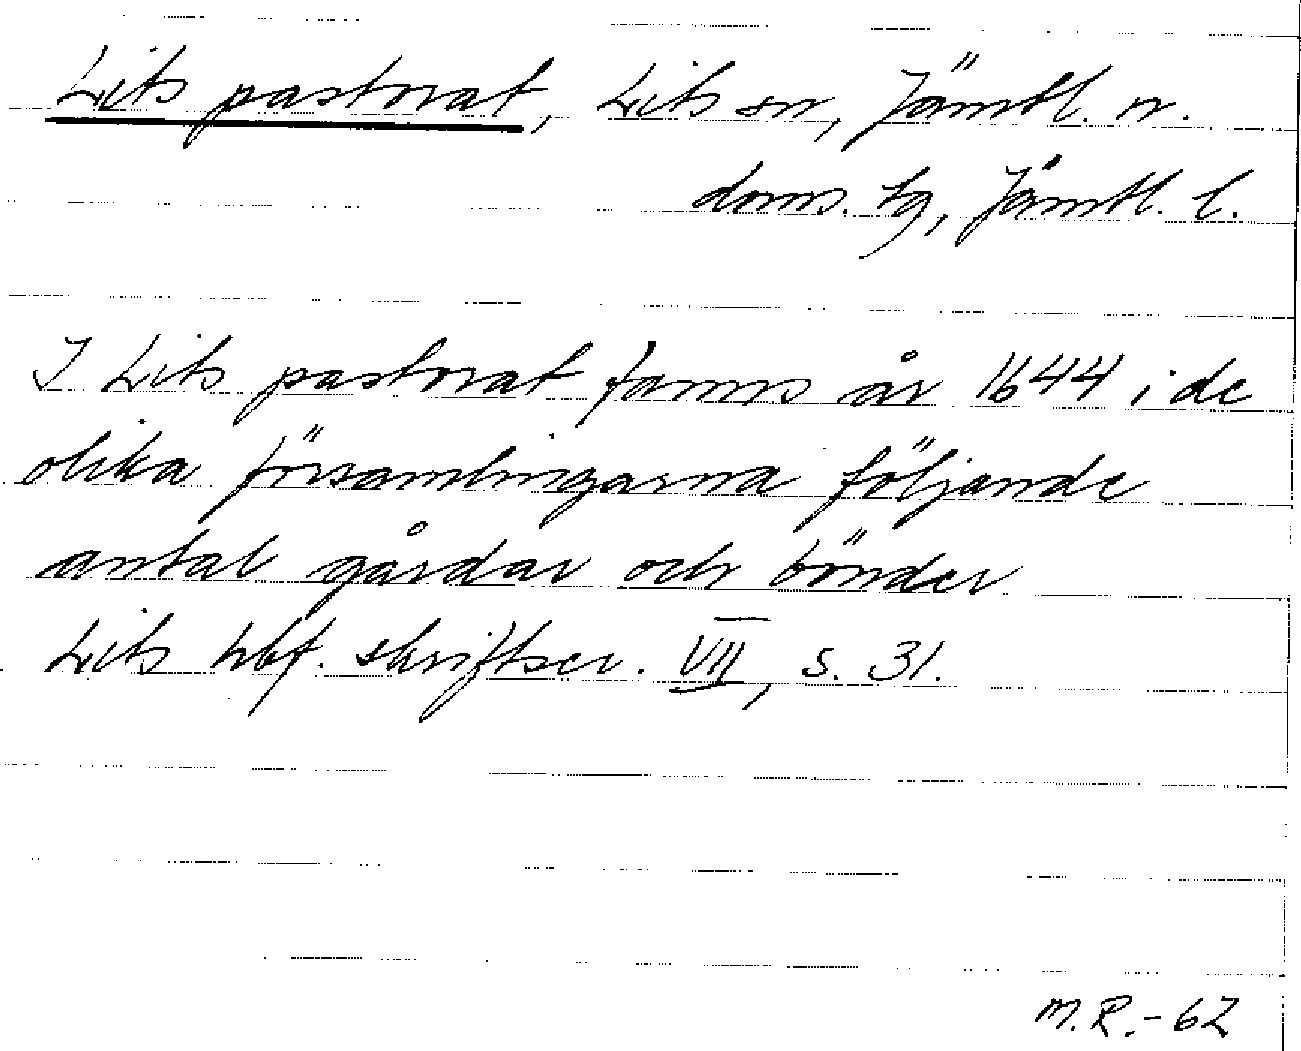 Lits pastorat, Lits sn, Jämtl. n.
doms. tg, Jämtl. l.
I Lits pastorat fanns år 1644 i de
olika församlingarna följande
antal gårdar och bönder
Lits hbf. skriftser. VII, s. 31.
M.R.-62